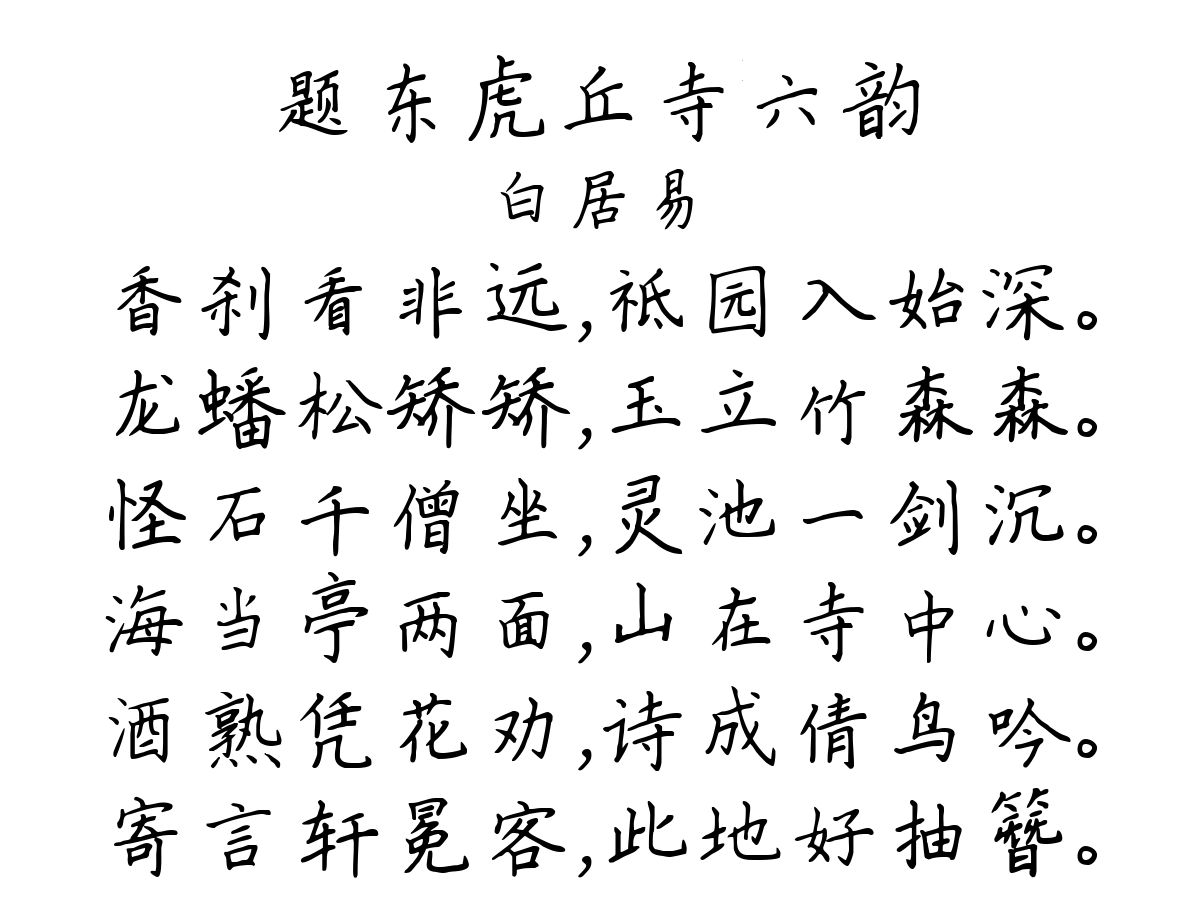 题东虎丘寺六韵
白居易
香刹看非远,祇园入始深。
龙蟠松矫矫,玉立竹森森。
怪石千僧坐,灵池一剑沉。
海当亭两面,山在寺中心。
酒熟凭花劝,诗成倩鸟吟。
寄言轩冕客,此地好抽簪。